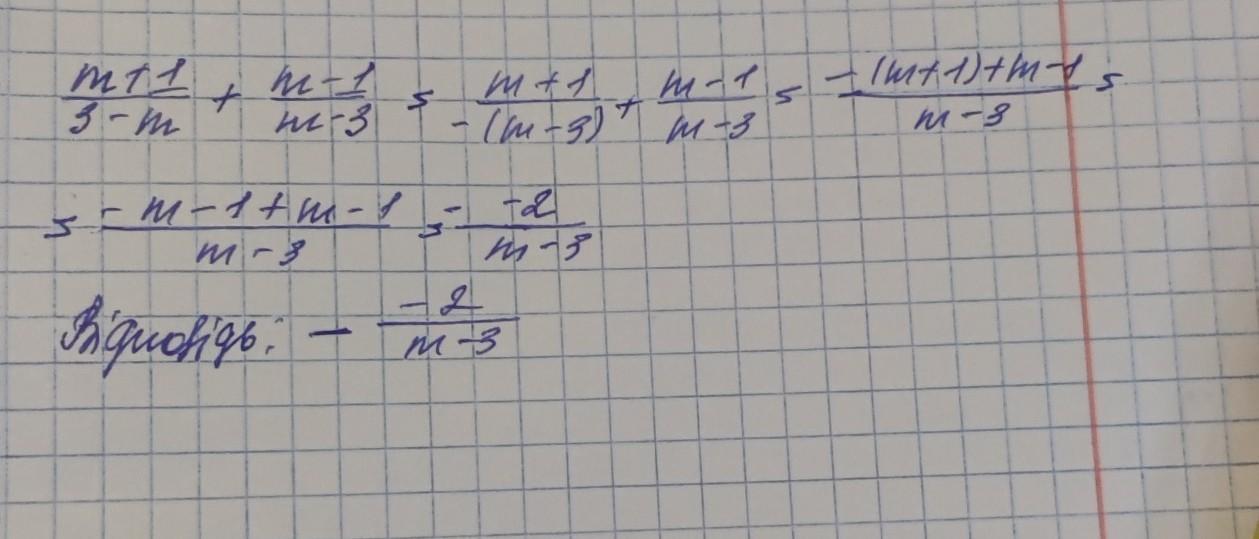 (m+1)/(3-m) + (m-1)/(m-3) = (m+1)/(-(m-3)) + (m-1)/(m-3) = (-(m+1)+m-1)/(m-3) =
= (-m-1+m-1)/(m-3) = - (-2)/(m-3)
Відповідь: - (-2)/(m-3)